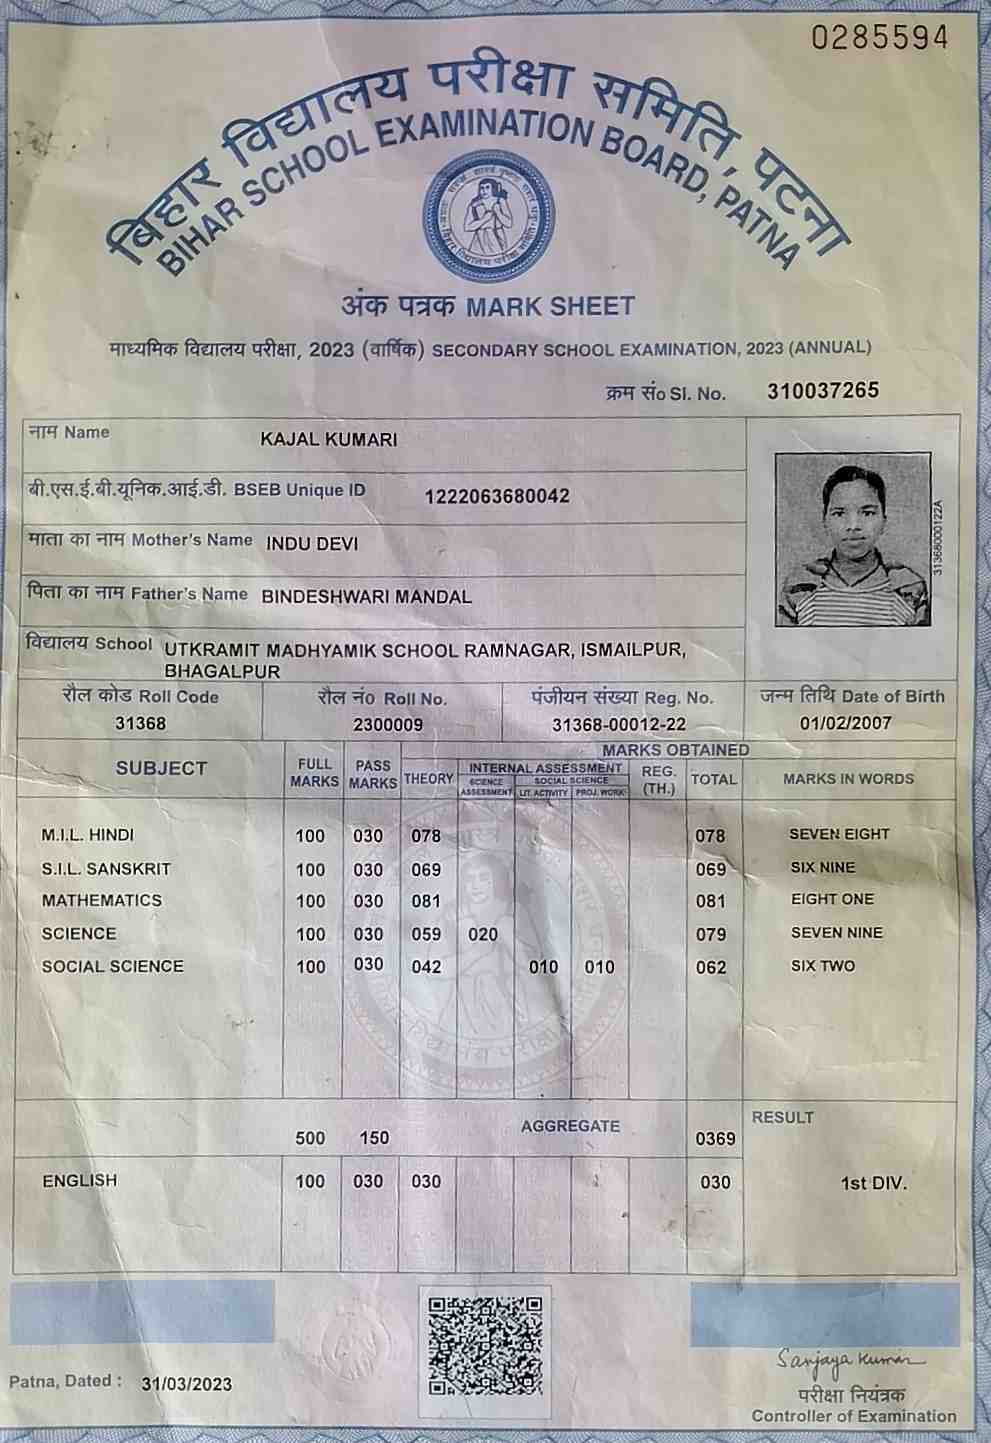 0285594
बिहार विद्यालय परीक्षा समिति, पटना
BIHAR SCHOOL EXAMINATION BOARD, PATNA
अंक पत्रक MARK SHEET
माध्यमिक विद्यालय परीक्षा, 2023 (वार्षिक) SECONDARY SCHOOL EXAMINATION, 2023 (ANNUAL)
क्रम सं० Sl. No. 310037265
नाम Name KAJAL KUMARI
बी.एस.ई.बी.यूनिक.आई.डी. BSEB Unique ID 1222063680042
माता का नाम Mother's Name INDU DEVI
पिता का नाम Father's Name BINDESHWARI MANDAL
31368000122A
विद्यालय School UTKRAMIT MADHYAMIK SCHOOL RAMNAGAR, ISMAILPUR,
BHAGALPUR
रौल कोड Roll Code रौल नं० Roll No. पंजीयन संख्या Reg. No. जन्म तिथि Date of Birth
31368 2300009 31368-00012-22 01/02/2007
MARKS OBTAINED
SUBJECT FULL MARKS PASS MARKS THEORY INTERNAL ASSESSMENT REG. (TH.) TOTAL MARKS IN WORDS
SCIENCE ASSESSMENT SOCIAL SCIENCE
LIT. ACTIVITY PROJ. WORK
M.I.L. HINDI 100 030 078 078 SEVEN EIGHT
S.I.L. SANSKRIT 100 030 069 069 SIX NINE
MATHEMATICS 100 030 081 081 EIGHT ONE
SCIENCE 100 030 059 020 079 SEVEN NINE
SOCIAL SCIENCE 100 030 042 010 010 062 SIX TWO
500 150 AGGREGATE 0369 RESULT
ENGLISH 100 030 030 030 1st DIV.
Sanjaya Kumar
Patna, Dated : 31/03/2023
परीक्षा नियंत्रक
Controller of Examination